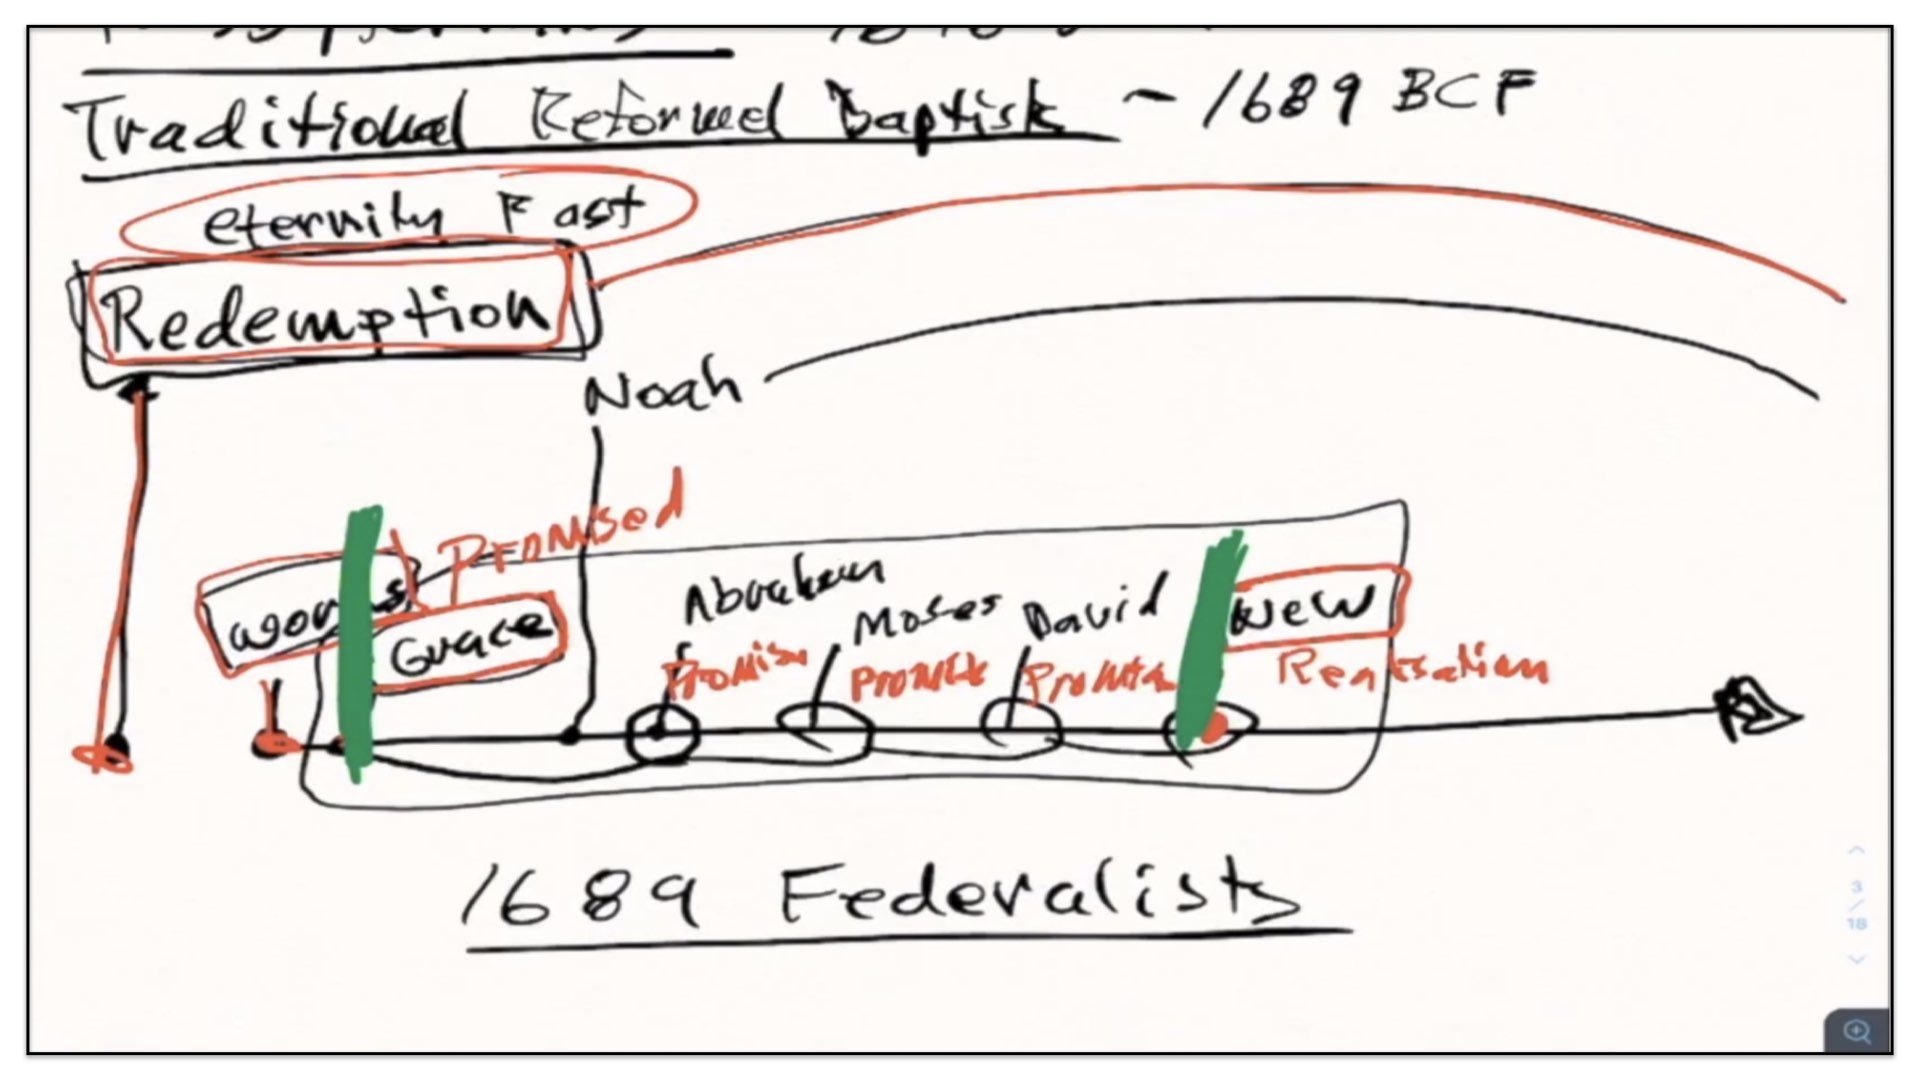 Traditional Reformed Baptists ~ 1689 BCF
eternity Past
Redemption
Noah
Promised
works
Grace
Abraham
Moses
David
New
Promise
Promise
Promise
Realisation
1689 Federalists
3
/
18